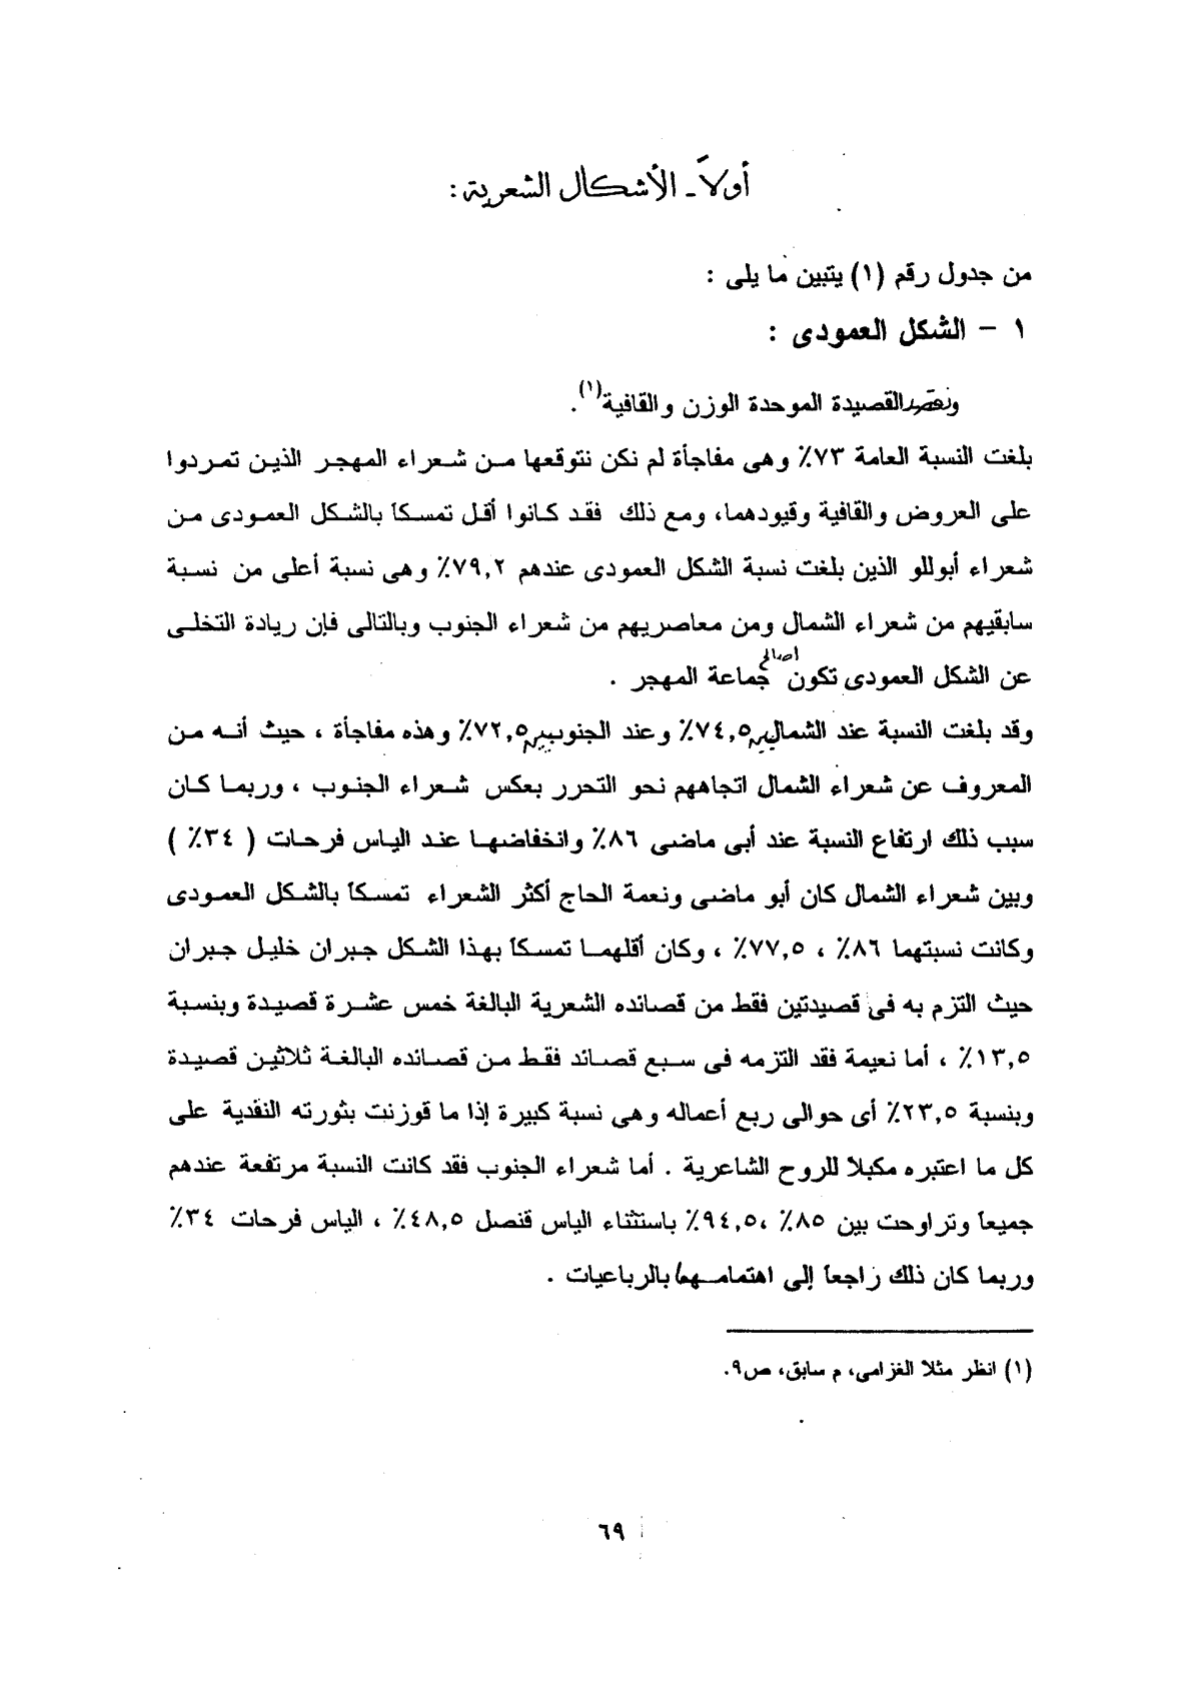 أولاً ـ الأشكال الشعرية :
من جدول رقم (١) يتبين ما يلى :
١ - الشكل العمودى :
ونقصد القصيدة الموحدة الوزن والقافية(١).
بلغت النسبة العامة ٧٣٪ وهى مفاجأة لم نكن نتوقعها من شعراء المهجر الذين تمردوا
على العروض والقافية وقيودهما، ومع ذلك فقد كانوا أقل تمسكاً بالشكل العمودى من
شعراء أبوللو الذين بلغت نسبة الشكل العمودى عندهم ٧٩,٢٪ وهى نسبة أعلى من نسبة
سابقيهم من شعراء الشمال ومن معاصريهم من شعراء الجنوب وبالتالى فإن ريادة التخلى
عن الشكل العمودى تكون لصالح جماعة المهجر .
وقد بلغت النسبة عند الشماليين ٧٤,٥٪ وعند الجنوبيين ٧٢,٥٪ وهذه مفاجأة ، حيث أنه من
المعروف عن شعراء الشمال اتجاههم نحو التحرر بعكس شعراء الجنوب ، وربما كان
سبب ذلك ارتفاع النسبة عند أبى ماضى ٨٦٪ وانخفاضها عند الياس فرحات ( ٣٤٪ )
وبين شعراء الشمال كان أبو ماضى ونعمة الحاج أكثر الشعراء تمسكاً بالشكل العمودى
وكانت نسبتهما ٨٦٪ ، ٧٧,٥٪ ، وكان أقلهما تمسكاً بهذا الشكل جبران خليل جبران
حيث التزم به فى قصيدتين فقط من قصائده الشعرية البالغة خمس عشرة قصيدة وبنسبة
١٣,٥٪ ، أما نعيمة فقد التزمه فى سبع قصائد فقط من قصائده البالغة ثلاثين قصيدة
وبنسبة ٢٣,٥٪ أى حوالى ربع أعماله وهى نسبة كبيرة إذا ما قوزنت بثورته النقدية على
كل ما اعتبره مكبلا للروح الشاعرية . أما شعراء الجنوب فقد كانت النسبة مرتفعة عندهم
جميعاً وتراوحت بين ٨٥٪ ،٩٤,٥٪ باستثناء الياس قنصل ٤٨,٥٪ ، الياس فرحات ٣٤٪
وربما كان ذلك راجعاً إلى اهتمامهما بالرباعيات .
(١) انظر مثلا الغزامى، م سابق، ص٩.
٦٩